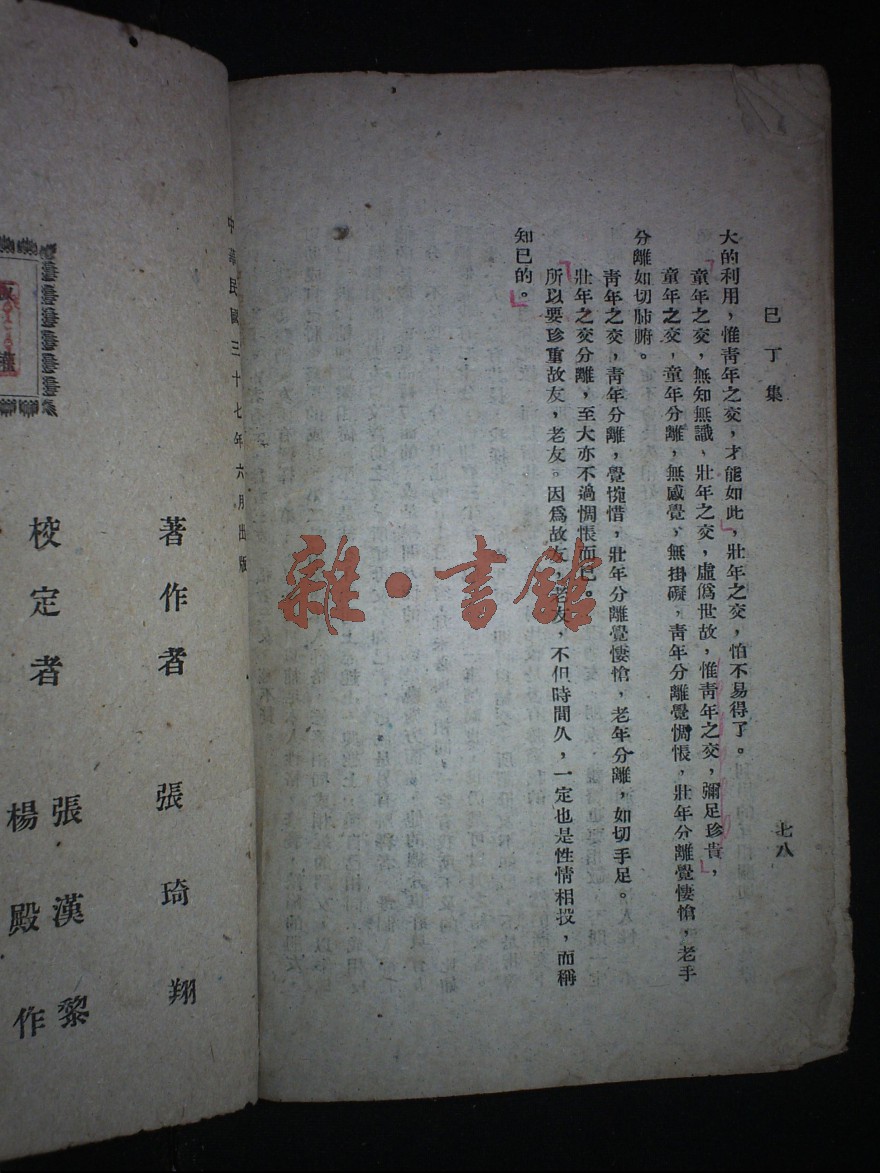 巳丁集
七八
大的利用，惟青年之交，才能如此，壯年之交，怕不易得了。
童年之交，無知無識、壯年之交，虛僞世故，惟青年之交，彌足珍貴，
童年之交，童年分離，無感覺，無掛礙，青年分離覺惆悵，壯年分離覺悽愴，老手
分離如切肺腑。
青年之交，青年分離，覺惋惜，壯年分離覺悽愴，老年分離，如切手足。
壯年之交分離，至大亦不過惆悵而已。
所以要珍重故友，老友。因爲故友，老友，不但時間久，一定也是性情相投，而稱
知巳的。
雜·書館
中華民國三十七年六月出版
著作者 張琦翔
校定者 張漢黎
楊殿作
權